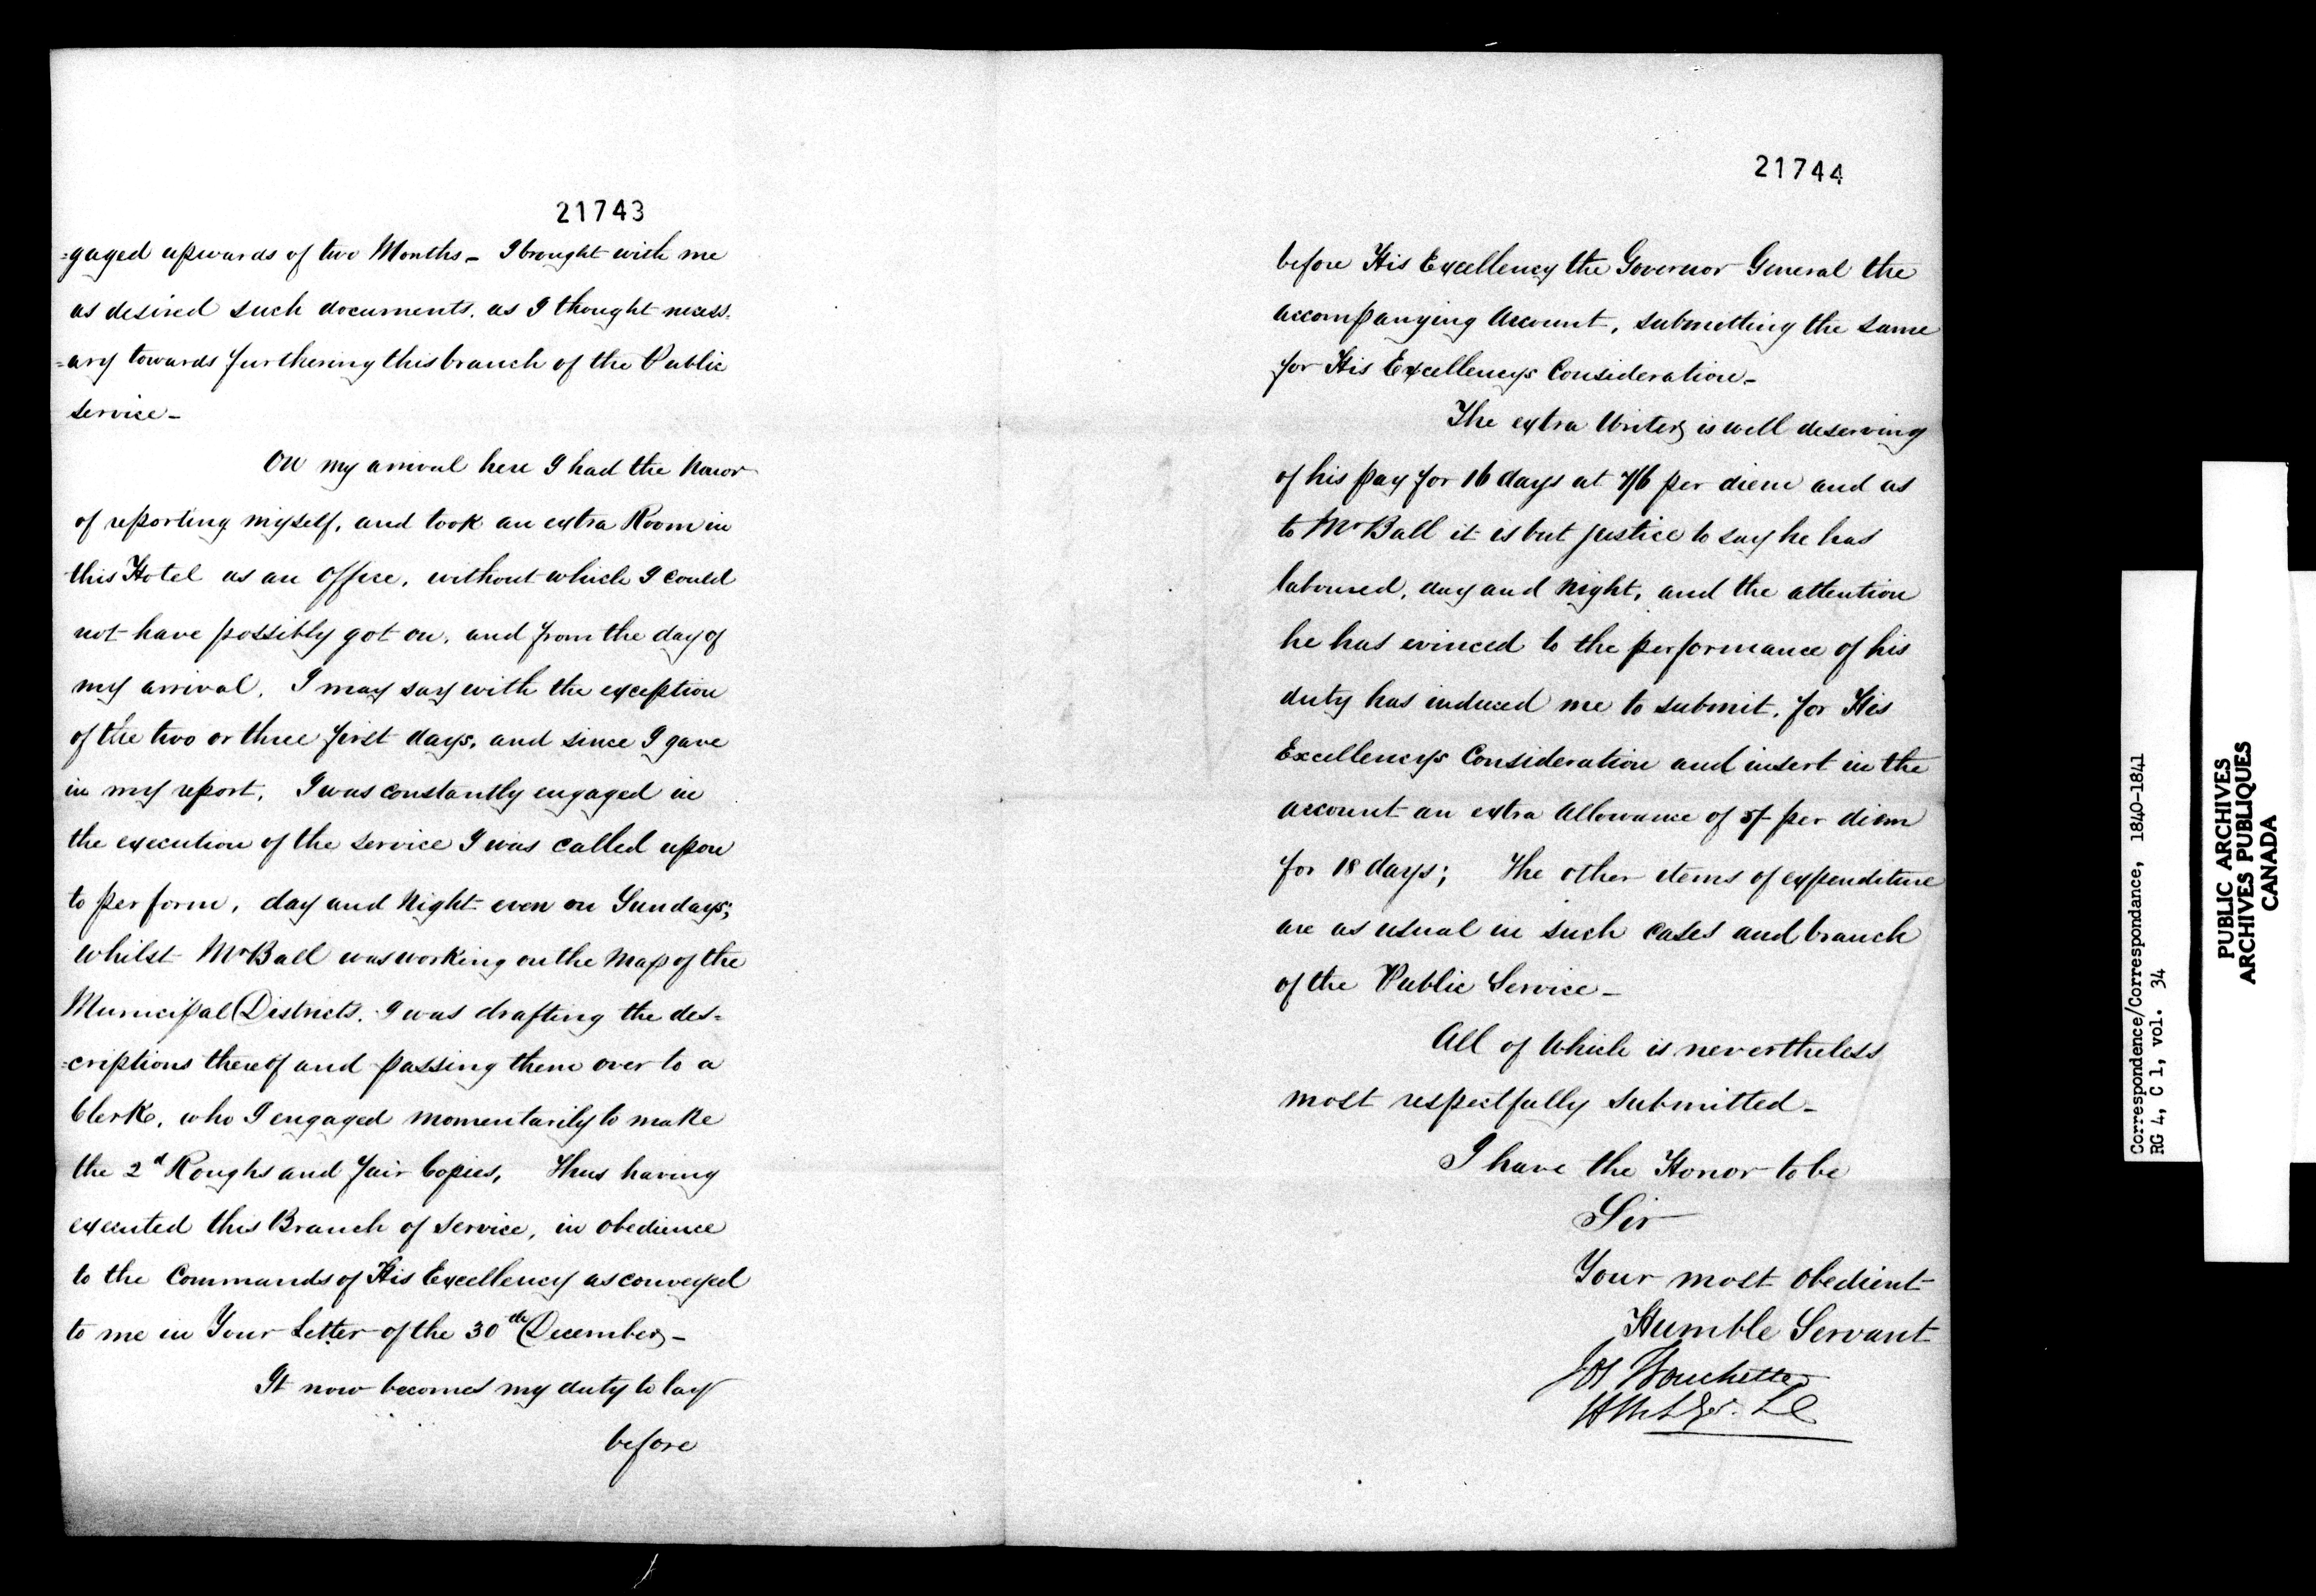 21743
=gaged upwards of two Months – I brought with me
as desired such documents, as I thought necess=
=ary towards furthering this branch of the Public
service –
On my arrival here I had the honor
of reporting myself, and took an extra Room in
this Hotel as an Office, without which I could
not have possibly got on, and from the day of
my arrival, I may say with the exception
of the two or three first days, and since I gave
in my report, I was constantly engaged in
the execution of the service I was called upon
to perform, day and Night even on Sundays;
whilst Mr Ball was working on the Map of the
Municipal Districts, I was drafting the des=
=criptions thereof and passing them over to a
Clerk, who I engaged momentarily to make
the 2d Roughs and fair Copies, Thus having
executed this Branch of Service, in obedience
to the Commands of His Excellency as conveyed
to me in Your Letter of the 30th December –
It now becomes my duty to lay
before
21744
before His Excellency the Governor General the
accompanying Account, submitting the same
for His Excellencys Consideration –
The extra Writer is well deserving
of his pay for 16 days at 7/6 per diem and as
to Mr Ball it is but justice to say he has
laboured, day and Night, and the attention
he has evinced to the performance of his
duty has induced me to submit, for His
Excellencys Consideration and insert in the
account an extra Allowance of 5/- per diem
for 18 days; The other items of expenditure
are as usual in such cases and branch
of the Public Service –
All of Which is nevertheless
most respectfully submitted –
I have the Honor to be
Sir
Your most Obedient
Humble Servant
Jos Bouchette
Correspondence/Correspondance, 1840-1841
RG 4, C 1, vol. 34
PUBLIC ARCHIVES
ARCHIVES PUBLIQUES
CANADA